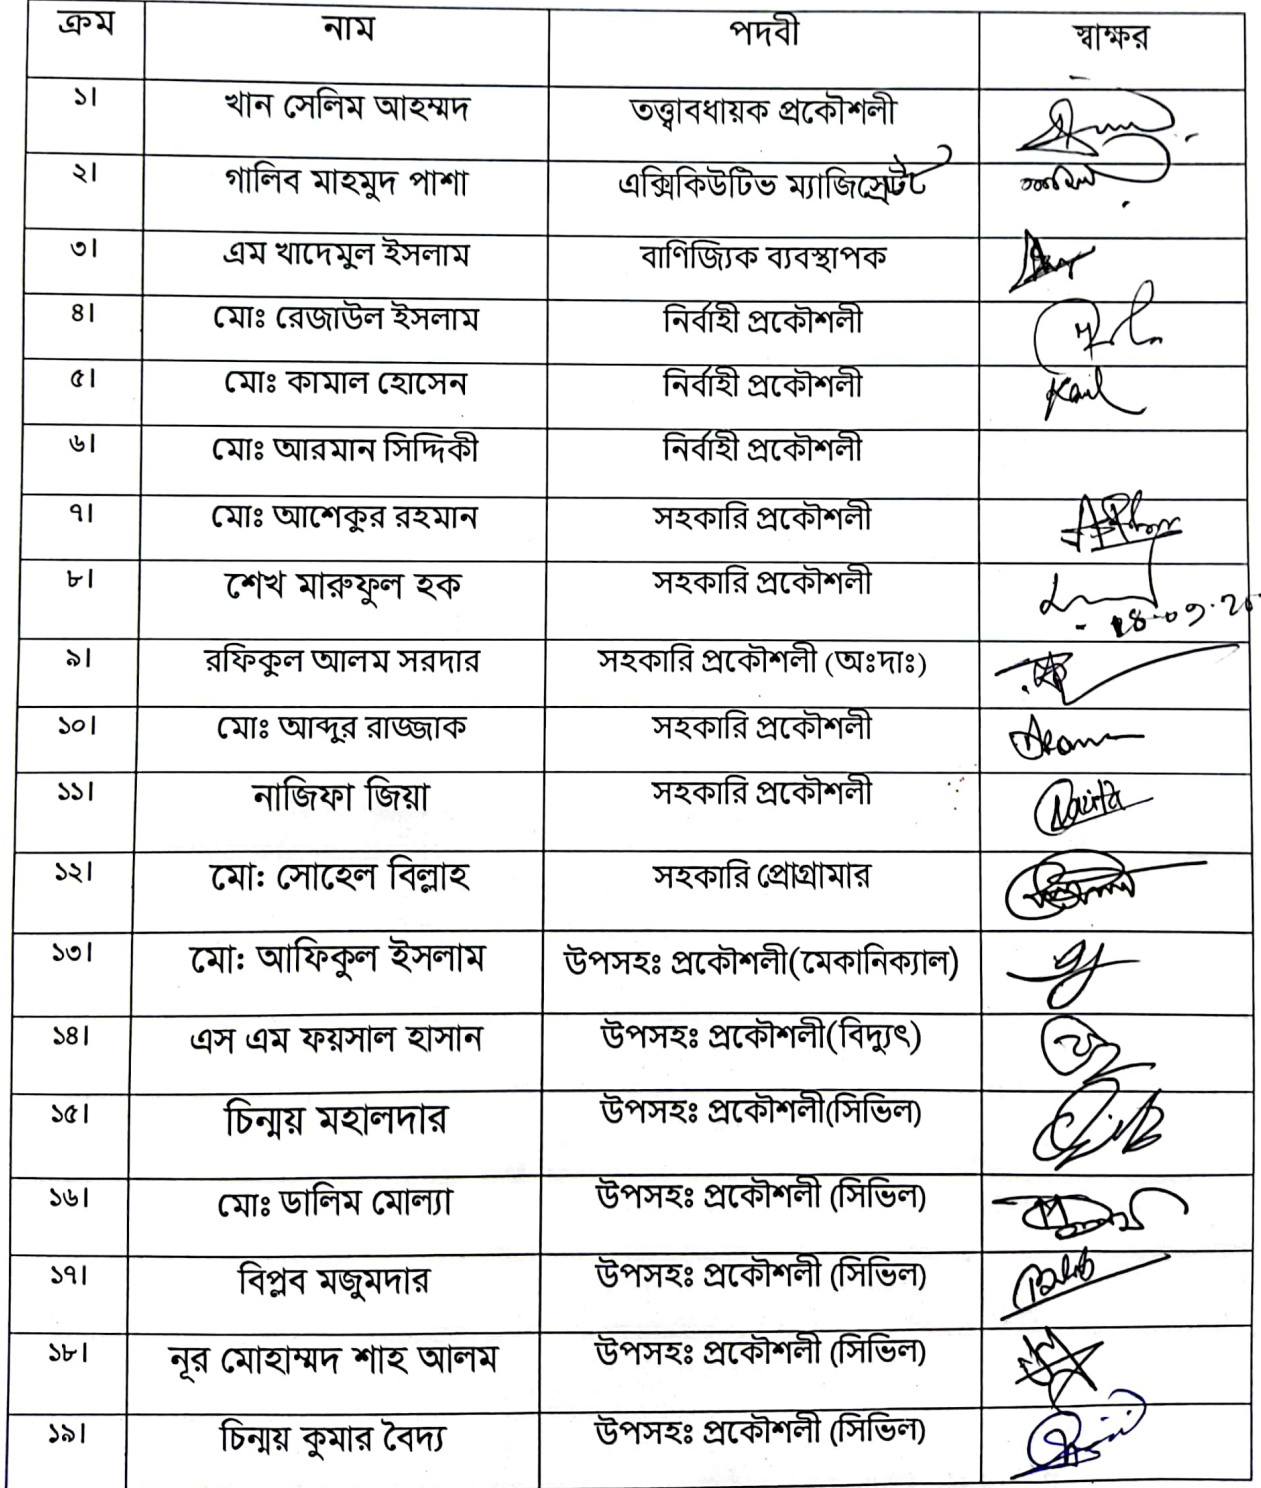 ক্রম নাম পদবী স্বাক্ষর
১। খান সেলিম আহম্মদ তত্ত্বাবধায়ক প্রকৌশলী
২। গালিব মাহমুদ পাশা এক্সিকিউটিভ ম্যাজিস্রেটট
৩। এম খাদেমুল ইসলাম বাণিজ্যিক ব্যবস্থাপক
৪। মোঃ রেজাউল ইসলাম নির্বাহী প্রকৌশলী
৫। মোঃ কামাল হোসেন নির্বাহী প্রকৌশলী
৬। মোঃ আরমান সিদ্দিকী নির্বাহী প্রকৌশলী
৭। মোঃ আশেকুর রহমান সহকারি প্রকৌশলী
৮। শেখ মারুফুল হক সহকারি প্রকৌশলী
৯। রফিকুল আলম সরদার সহকারি প্রকৌশলী (অঃদাঃ)
১০। মোঃ আব্দুর রাজ্জাক সহকারি প্রকৌশলী
১১। নাজিফা জিয়া সহকারি প্রকৌশলী
১২। মো: সোহেল বিল্লাহ সহকারি প্রোগ্রামার
১৩। মো: আফিকুল ইসলাম উপসহঃ প্রকৌশলী(মেকানিক্যাল)
১৪। এস এম ফয়সাল হাসান উপসহঃ প্রকৌশলী(বিদ্যুৎ)
১৫। চিন্ময় মহালদার উপসহঃ প্রকৌশলী(সিভিল)
১৬। মোঃ ডালিম মোল্যা উপসহঃ প্রকৌশলী (সিভিল)
১৭। বিপ্লব মজুমদার উপসহঃ প্রকৌশলী (সিভিল)
১৮। নূর মোহাম্মদ শাহ আলম উপসহঃ প্রকৌশলী (সিভিল)
১৯। চিন্ময় কুমার বৈদ্য উপসহঃ প্রকৌশলী (সিভিল)